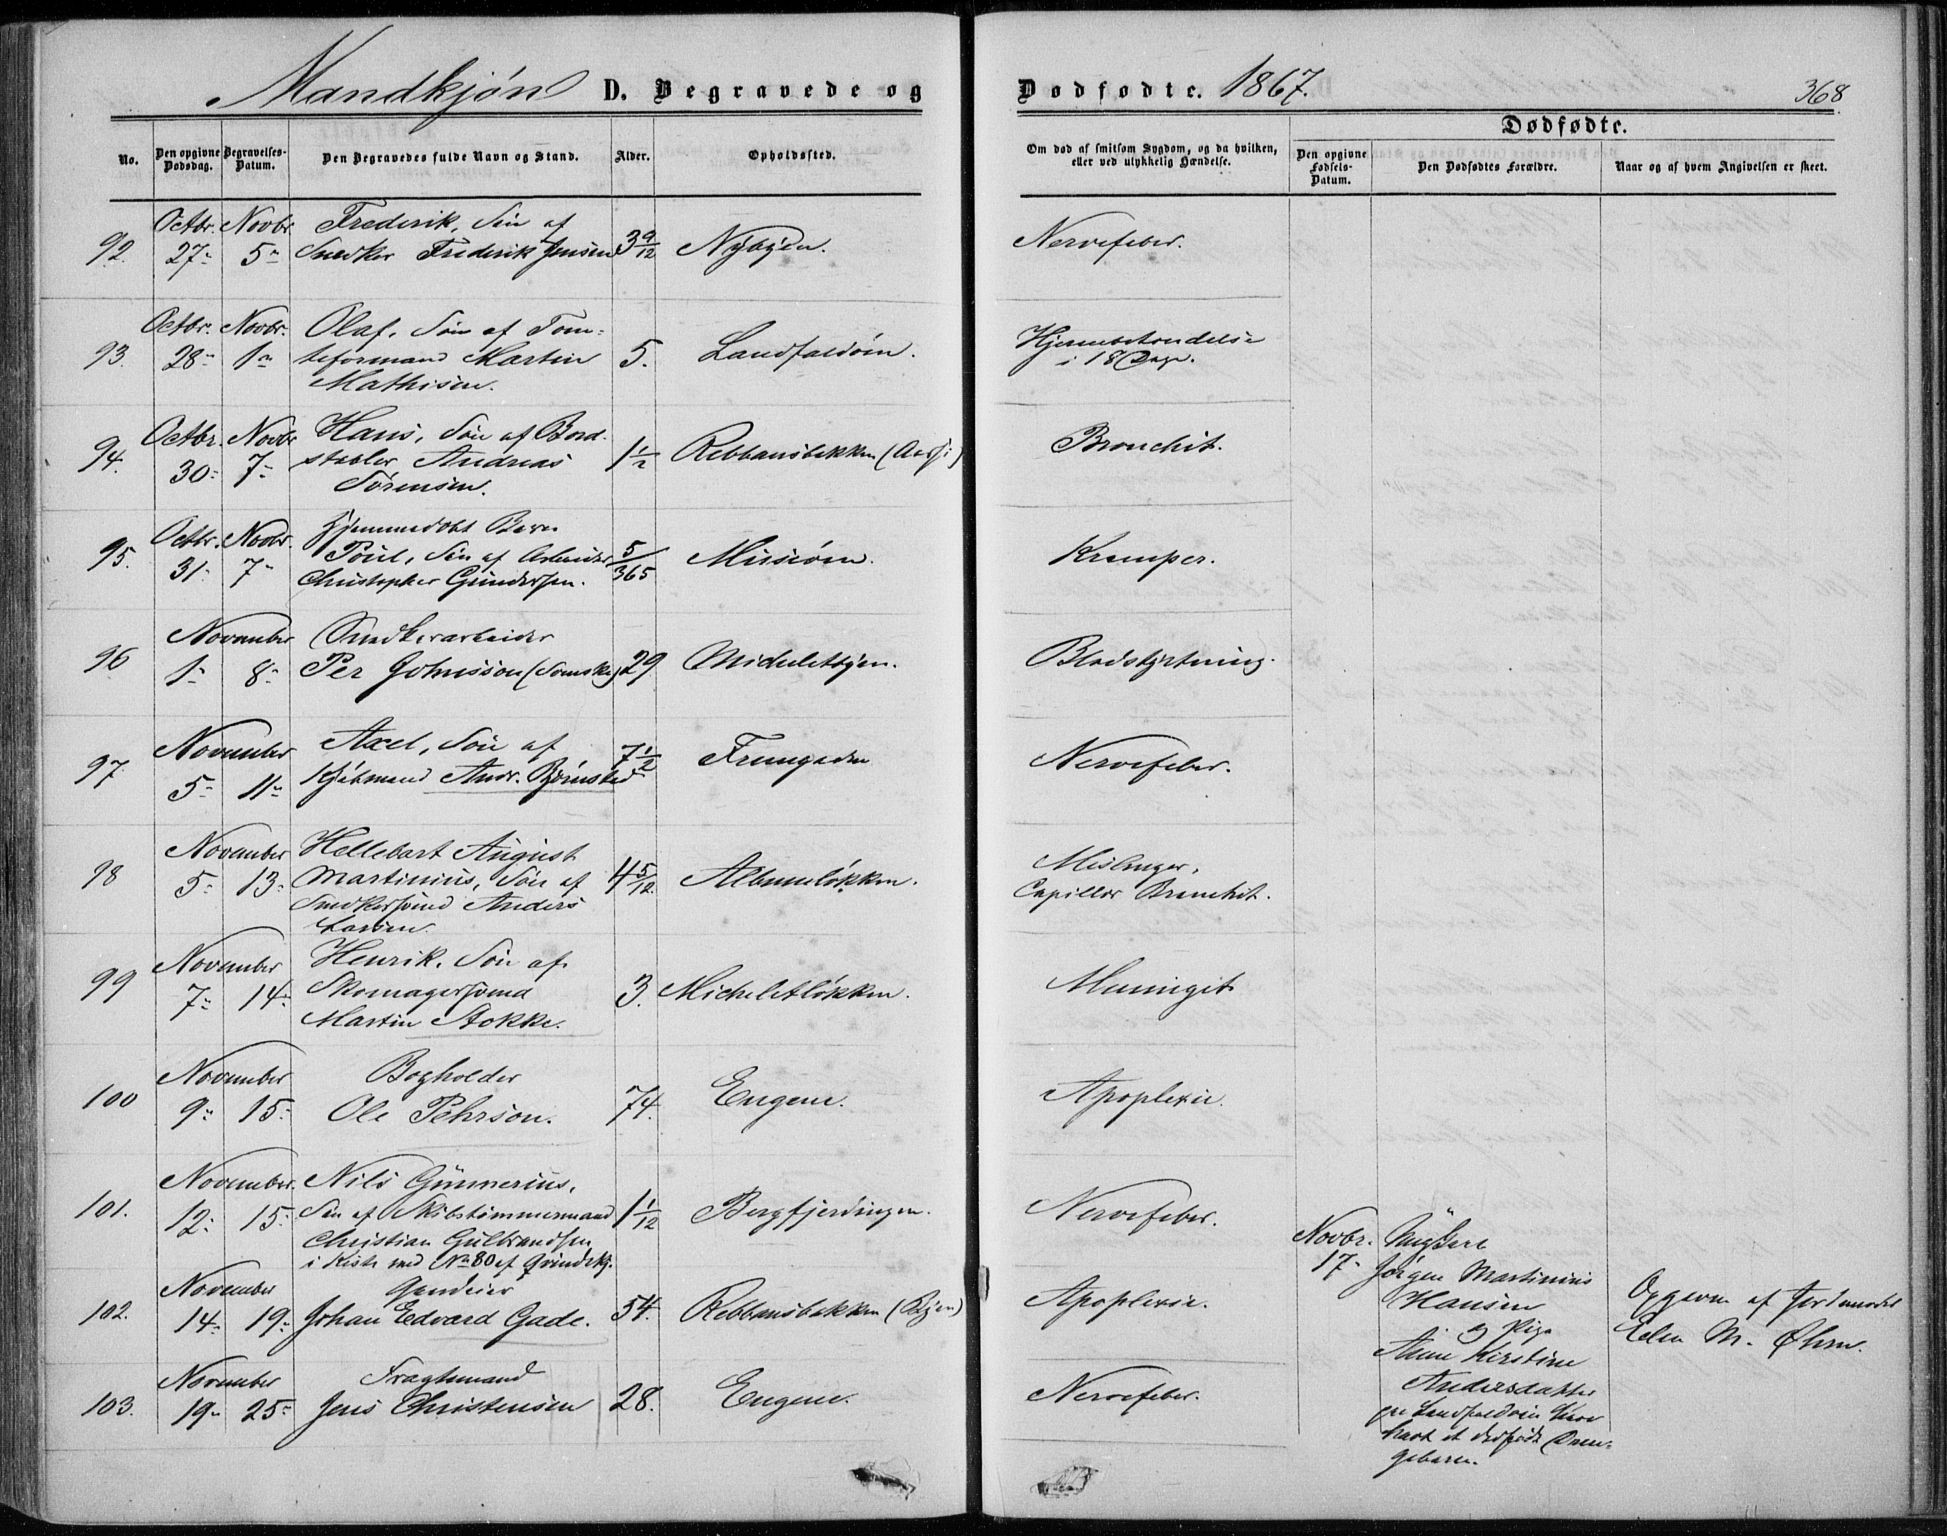 Mandkjøn D. Begravede og Dødfødte. 1867. 368
No.
Den opgivne Dødsdag.
Begravelses-Datum.
Den Begravedes fulde Navn og Stand.
Alder.
Opholdssted.
Om død af smitsom Sygdom, og da hvilken, eller ved ulykkelig Hændelse.
Dødfødte.
Den opgivne Fødsels-Datum.
Den Dødfødtes Forældre.
Naar og af hvem Angivelsen er skeet.
Octbr. Novbr. Frederik, Søn af
92. 27- 5- Snedker Frederik Jensen 3 9/12 Nybyen. Nervefeber.
Octbr. Novbr. Olaf, Søn af Tom-
93. 28- 1- teformand Martin 5. Landfaldøen. Hjernebetændelse
Mathisen. i 18 Dage.
Octbr. Novbr Hans, Søn af Bord-
94. 30- 7- stabler Andreas 1 1/2 Rebbansbakken Bronchit.
Sørensen.
Octbr. Novbr. Hjemmedøbt Barn
95. 31- 7- Poul, Søn af Arbeider 5/365 Krampe.
Christopher Gundersen.
November Snedkerarbeider
96 1- 8- Per Johnsson (Svensk) 29 Blodstyrtning.
November Axel, Søn af
97. 5- 11- Kjøbmand Andr. Bjørnstad 7 1/2 Nervefeber.
November Hellebart August
98 5- 13- Martinius, Søn af 4 5/12. Albumløkken. Meslinger,
Snedkersvend Anders Capillær Bronchit.
Larsen.
November Henrik, Søn af
99 7- 14- Skomagersvend 3. Micheletløkken. Meningit
Martin Stokke.
November Bogholder
100 9- 15- Ole Pehrson. 74. Engene. Apoplexie.
November. Nils Günnerius,
101. 12- 15- Søn af Skibstømmermand 1 1/12 Bergfjerdingen. Nervefeber.
Christian Gulbrandsen
i Kiste med No 80 af Qvindekj.
November Gaardeier
102. 14- 19- Johan Edvard Gade. 54. Rebbansbakken (Byen) Apoplexie.
November Fragtemand
103. 19- 25- Jens Christensen 28. Engene. Nervefeber.
Novbr. Ungkarl
17- Jørgen Martinius
Hansen
og Pige
Anne Kirstine
Andersdatter
paa Landfaldøen have
havt et dødfødt Dren-
gebarn.
Opgivne af Jordmoder
Elen M. Øhrn.